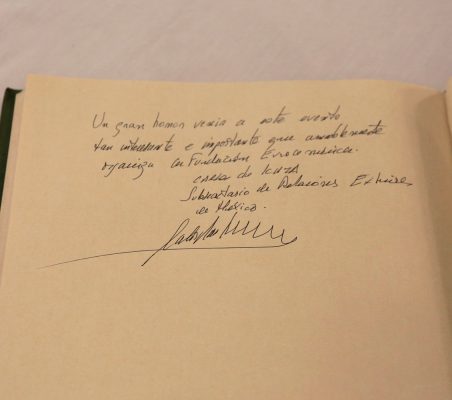 Un gran honor venir a este evento
tan interesante e importante que amablemente
organiza la Fundación Euroamérica.
Carlos de Icaza
Subsecretario de Relaciones Exteriores
de México.